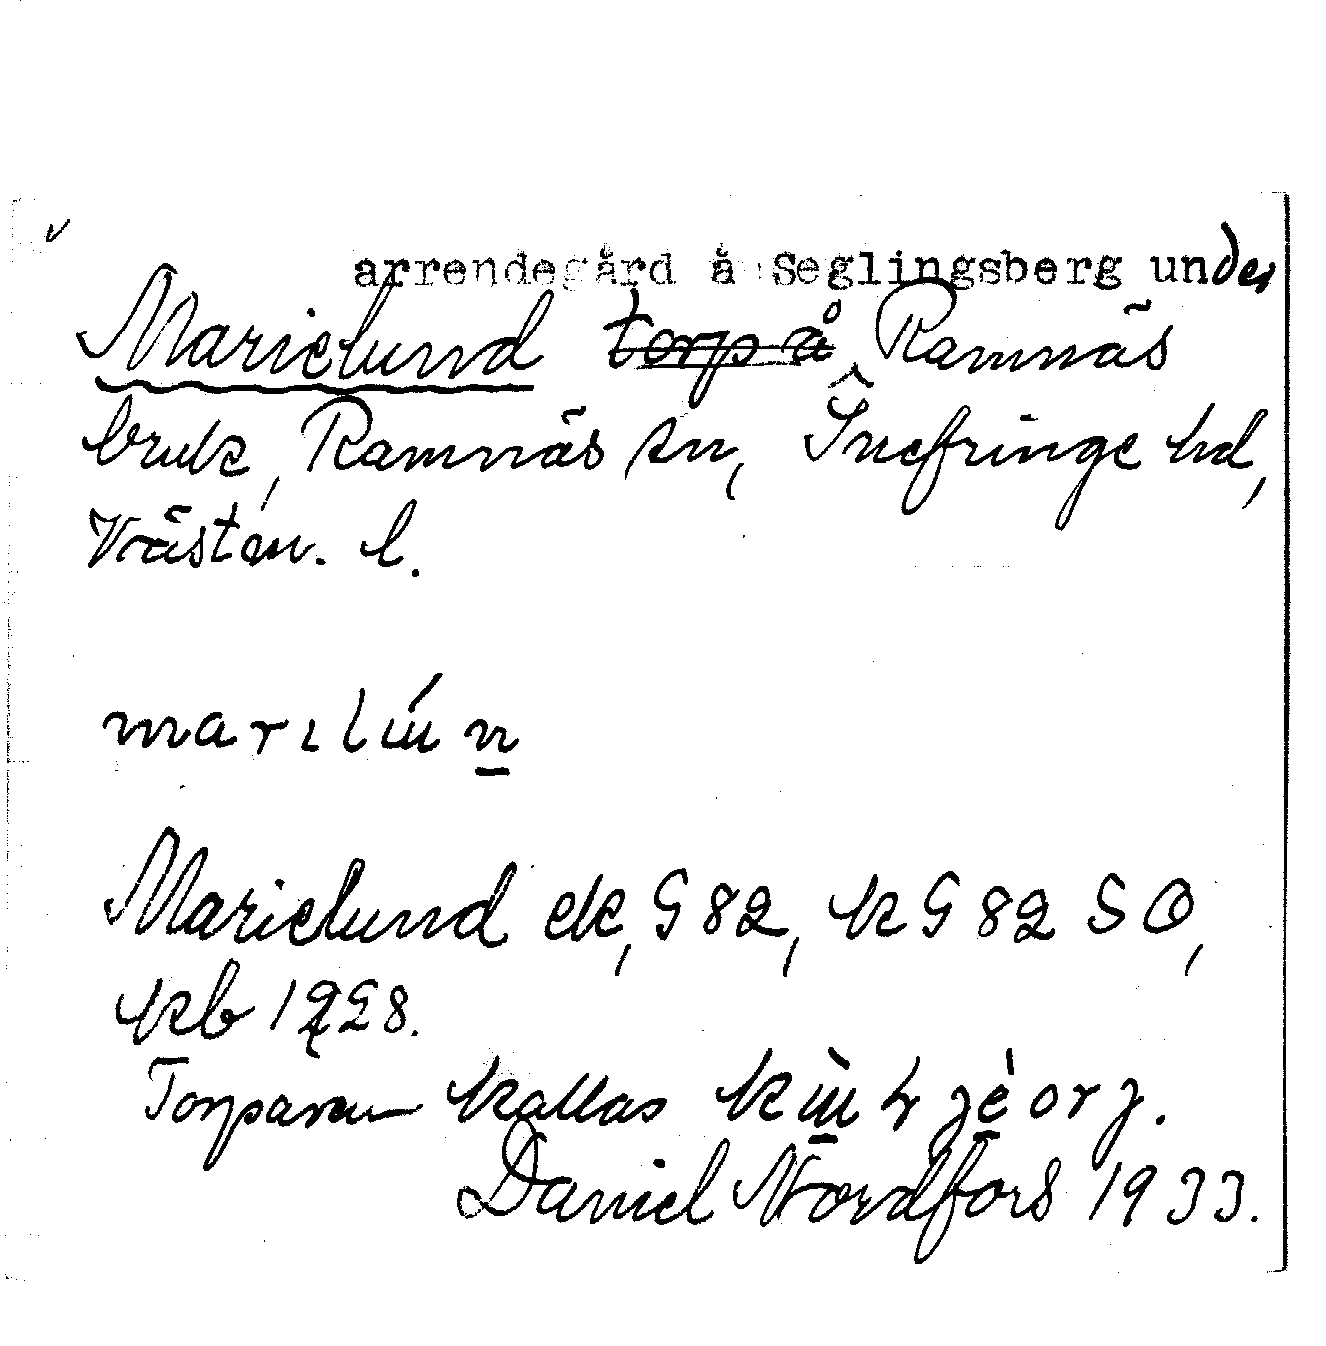 arrendegård å Seglingsberg under
Marielund torp å Ramnäs
bruk, Ramnäs sn, Snefringe hd,
Västm. l.
marılɯ́n
Marielund ek, G 82, k G 82 SO,
kb 1928.
Torparen kallas
Daniel Nordfors 1933.